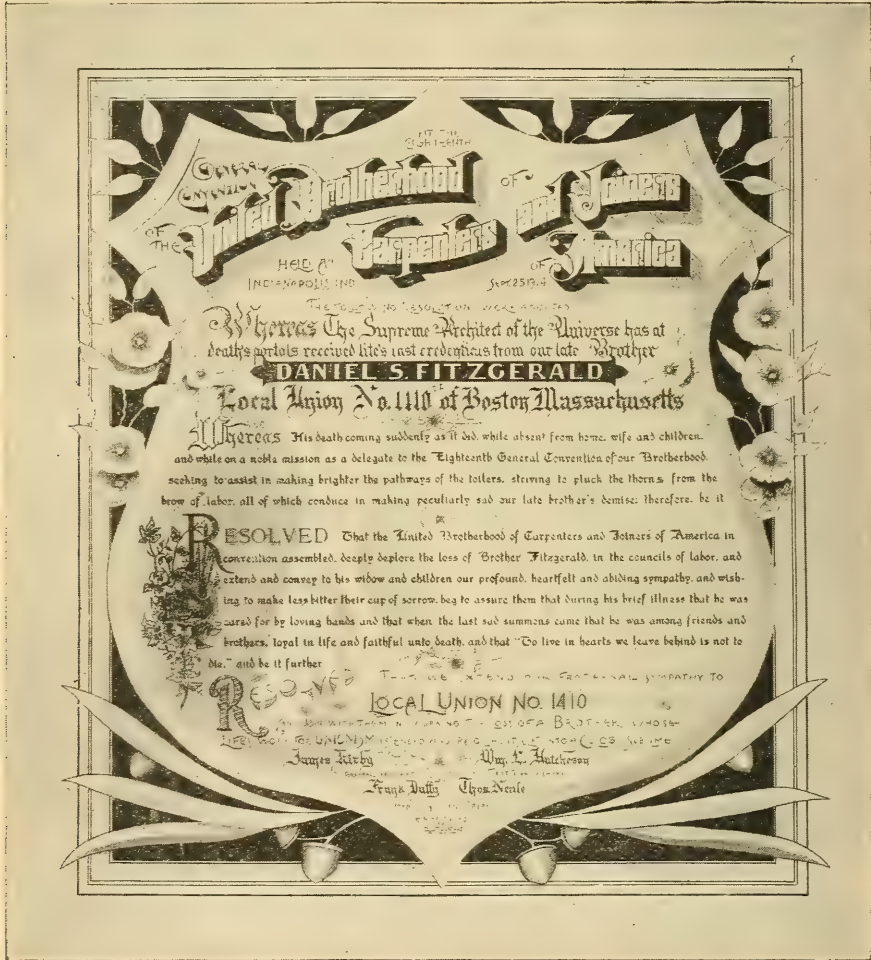 AT THE
EIGHTEENTH
GENERAL
CONVENTION
OF THE United Brotherhood OF
Carpenters and Joiners
OF America
HELD AT
INDIANAPOLIS IND
SEPT 25 1914
THE FOLLOWING RESOLUTIONS WERE ADOPTED
Whereas The Supreme Architect of the Universe has at
death's portals received life's last credentials from our late Brother
DANIEL S. FITZGERALD
Local Union No. 1410 of Boston Massachusetts
Whereas His death coming suddenly as it did, while absent from home, wife and children,
and while on a noble mission as a delegate to the Eighteenth General Convention of our Brotherhood,
seeking to assist in making brighter the pathways of the toilers, striving to pluck the thorns from the
brow of labor, all of which conduce in making peculiarly sad our late brother's demise; therefore, be it
RESOLVED That the United Brotherhood of Carpenters and Joiners of America in
convention assembled, deeply deplore the loss of Brother Fitzgerald, in the councils of labor, and
extend and convey to his widow and children our profound, heartfelt and abiding sympathy, and wish-
ing to make less bitter their cup of sorrow, beg to assure them that during his brief illness that he was
cared for by loving hands and that when the last sad summons came that he was among friends and
brothers, loyal in life and faithful unto death, and that "To live in hearts we leave behind is not to
die," and be it further
RESOLVED THAT WE EXTEND OUR FRATERNAL SYMPATHY TO
LOCAL UNION NO. 1410
AND JOIN WITH THEM IN MOURNING THE LOSS OF A BROTHER, WHOSE
LIFE'S WORK FOR UNIONISM
James Kirby Wm. L. Hutcheson
Frank Duffy Thos. Neale